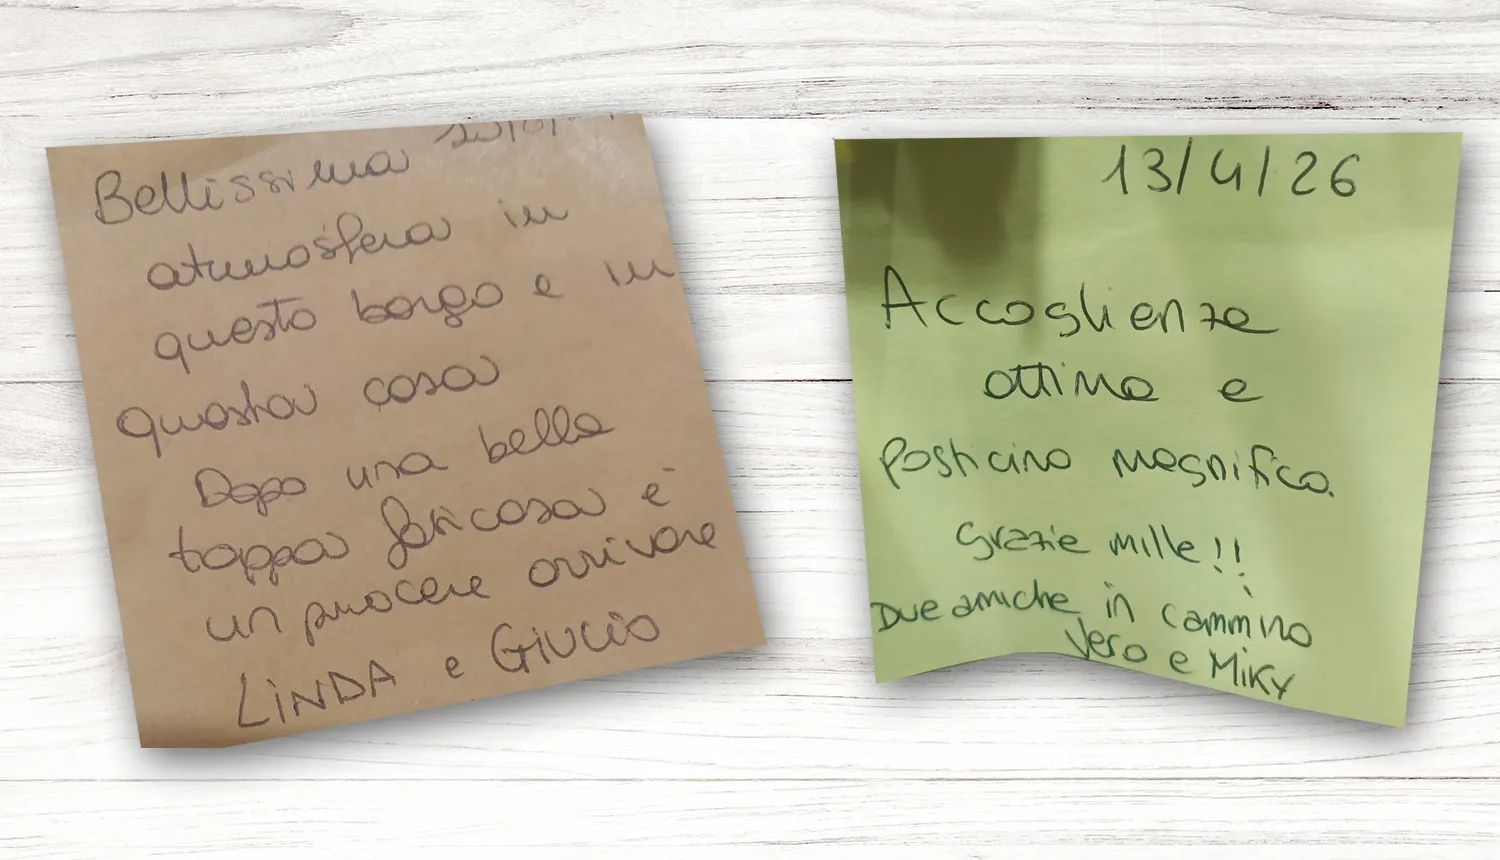 Bellissima
atmosfera in
questo borgo e in
questa casa
Dopo una bella
tappa faticosa è
un piacere arrivare
LINDA e GIULIO
13/4/26
Accoglienza
ottima e
Posticino magnifico.
Grazie mille!!
Due amiche in cammino
Vero e Miky